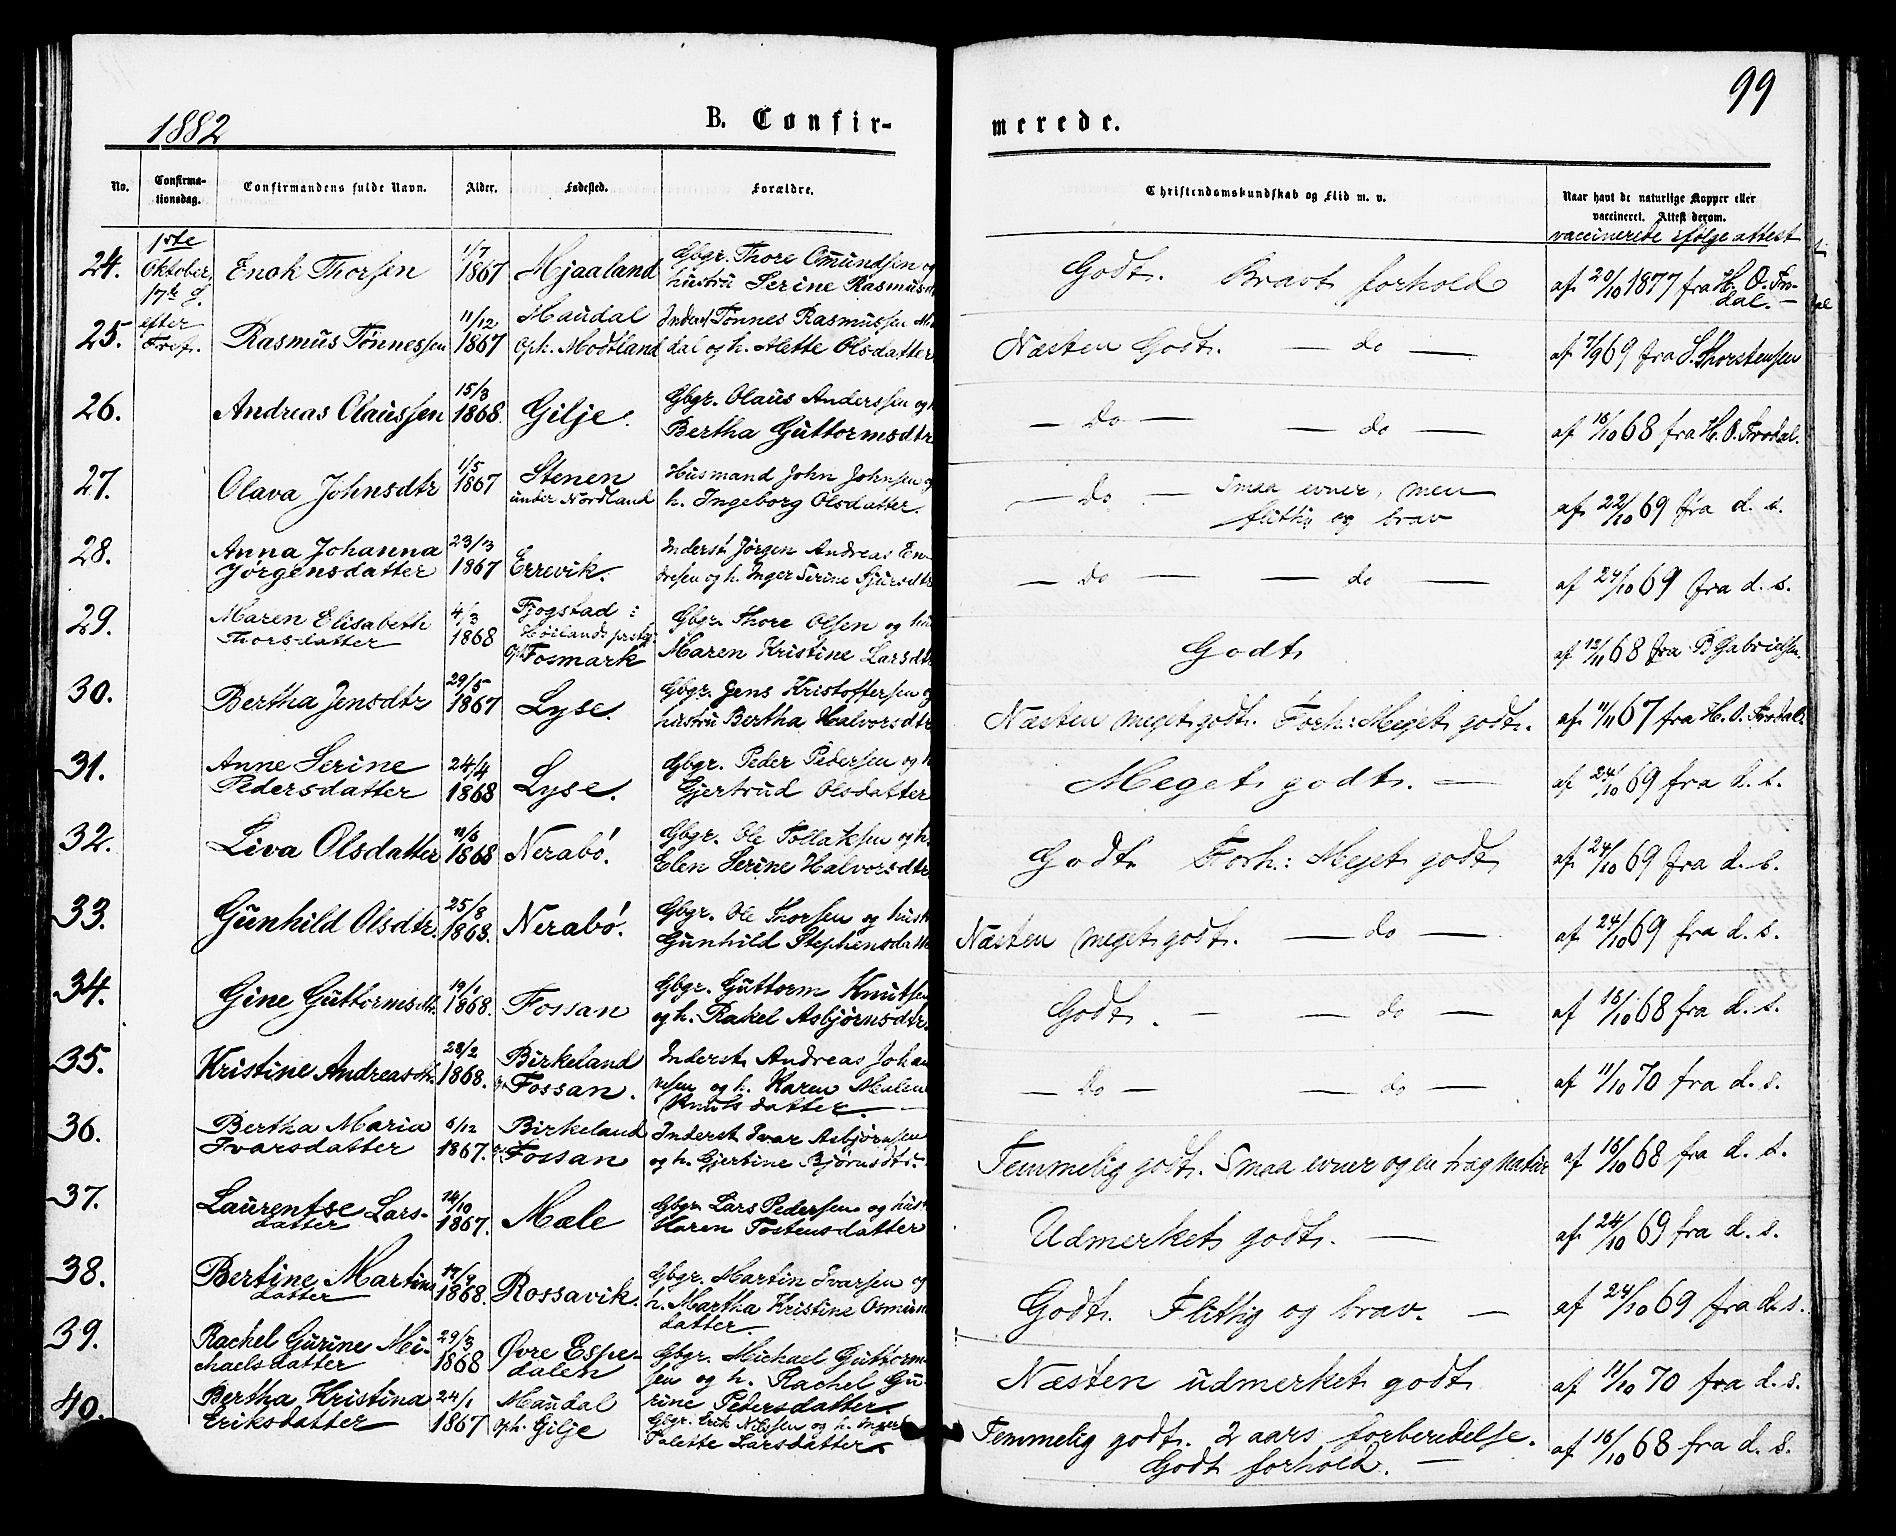 99
1882
B. Confir-
merede.
No.
Confirma-
tionsdag.
Confirmandens fulde Navn.
Alder.
Fødested.
Forældre.
Christendomskundskab og Flid m. v.
Naar havt de naturlige Kopper eller
vaccineret. Attest derom.
vaccinerede ifølge attest
24.
1ste
Oktober,
17de S.
efter
Tref.
Enok Thorsen
1/7
1867
Mjaaland
Gbgr. Thore Omundsen og
hustru Serine Rasmusd
Godt. Bravt forhold
af 20/10 1877 fra H. O. Fro-
dal. —
25.
Rasmus Tönnessen
11/12
1867
Maudal
Oph. Modtland
Inderst Tönnes Rasmussen M
dal og h. Mette Olsdatter
Næsten Godt. — do —
af 7/9 69 fra S. Thorstensen
26.
Andreas Olaussen
15/3
1868
Gilje.
Gbgr. Olaus Anderssen og h
Bertha Guttormsdtr
— do — — do —
af 16/10 68 fra H. O. Frodal.
27.
Olava Johnsdtr
1/5
1867
Stenen
under Nordland
Husmand John Johnsen og
h. Ingeborg Olsdatter.
— do — Smaa evner, men
flittig og brav
af 22/10 69 fra d. s.
28.
Anna Johanna
Jørgensdatter
23/3
1867
Errevik.
Inderst Jørgen Andreas En-
dresen og h. Inger Serine Sjursdtr
— do — — do —
af 24/10 69 fra d. s.
29.
Maren Elisabeth
Thorsdatter
4/3
1868
Fjogstad i
Høilands prstgj.
Oph. Fosmark
Gbgr. Thore Olsen og hu
Maren Kristine Larsdtr
Godt
af 12/11 68 fra B Gabrielsen.
30.
Bertha Jensdtr
29/5
1867
Lyse.
Gbgr. Jens Kristoffersen og
hustru Bertha Halvorsdtr
Næsten meget godt. Forh.: Meget godt.
af 11/11 67 fra H. O. Frodal.
31.
Anne Serine
Pedersdatter
24/4
1868
Lyse.
Gbgr. Peder Pedersen og h
Gjertrud Olsdatter
Meget godt. —
af 24/10 69 fra d. s.
32.
Liva Olsdatter
1868
Nerabö.
Gbgr. Ole Tollaksen og h.
Elen Serine Halvorsdtr
Godt. Forh.: Meget godt
af 24/10 69 fra d. s.
33.
Gunhild Olsdtr.
25/8
1868.
Nerabö.
Gbgr. Ole Thorsen og hust
Gunhild Stephensdatt
Næsten meget godt. — do —
af 24/10 69 fra d. s.
34.
Gine Guttormsdtr.
19/1
1868.
Fossan
Gbgr. Guttorm Knutsen
og h. Rakel Asbjørnsdtr.
Godt. — — do —
af 16/10 68 fra d. s.
35.
Kristine Andreasdtr.
28/2
1868.
Birkeland
Fossan.
Inderst Andreas Joha
nesen og h. Karen Malene
Knutsdatter. —
— do — — do —
af 11/10 70 fra d. s.
36.
Bertha Maria
Ivarsdatter
6/12
1867.
Birkeland
Fossan
Inderst Ivar Asbjørnsen
og h. Gjertine Bjørnsdtr.
Temmelig godt. Smaa evner og en træg natur
af 16/10 68 fra d. s.
37.
Laurentse Lars-
datter
14/10
1867.
Mæle
Gbgr. Lars Pedersen og hust
Karen Tostensdatter
Udmerket godt. —
af 24/10 69 fra d. s.
38.
Bertine Martins
datter
1868.
Rossavik.
Gbgr. Martin Ivarsen og
h. Martha Kristine Omun
datter.
Godt. Flittig og brav. —
af 24/10 69 fra d. s.
39.
Rachel Gurine Mi-
chaelsdatter
29/3
1868
Øvre Espe-
dalen
Gbgr. Michael Guttorm-
sen og h. Rachel Gu-
rine Petersdatter.
Næsten udmerket godt
af 11/10 70 fra d. s.
40.
Bertha Kristina
Eriksdatter
24/1
1867
Maudal
Oph. Gilje
Gbgr. Erik Nilssen og h. Ingeb
Valette Larsdatter.
Temmelig godt. 2 aars forberedelse.
Godt forhold. —
af 16/10 68 fra d. s.